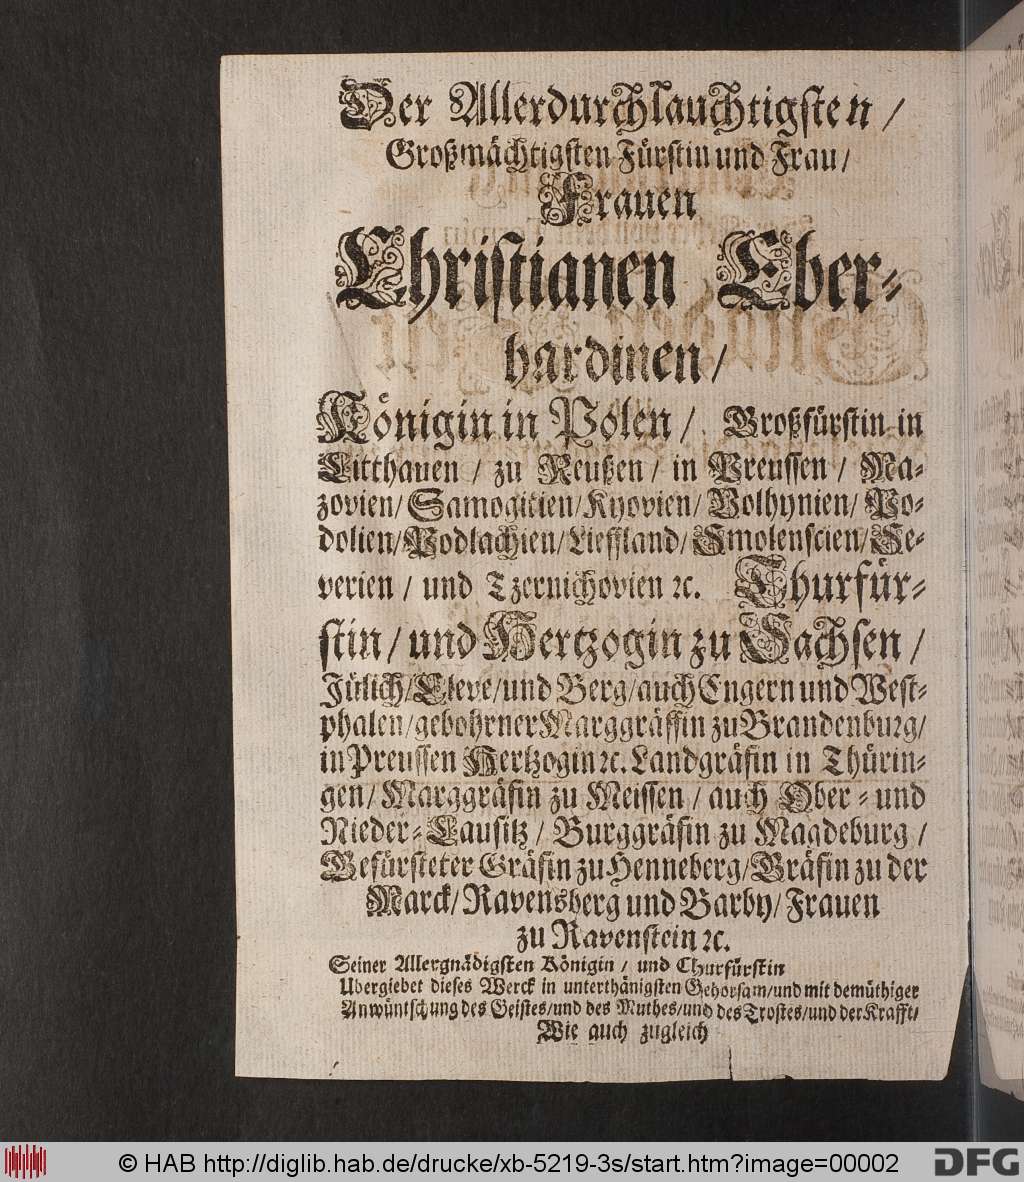 Der Allerdurchlauchtigsten /
Großmächtigsten Fürstin und Frau /
Frauen
Christianen Eber-
hardinen /
Königin in Polen / Großfürstin in
Litthauen / zu Reußen / in Preussen / Ma-
zovien / Samogitien / Kyovien / Volhynien / Po-
dolien / Podlachien / Lieffland / Smolenscien / Se-
verien / und Tzernichovien ꝛc. Churfür-
stin / und Hertzogin zu Sachsen /
Jülich / Cleve / und Berg / auch Engern und West-
phalen / gebohrner Marggräffin zu Brandenburg /
in Preussen Hertzogin ꝛc. Landgräfin in Thürin-
gen / Marggräfin zu Meissen / auch Ober- und
Nieder-Lausitz / Burggräfin zu Magdeburg /
Gefürsteter Gräfin zu Henneberg / Gräfin zu der
Marck / Ravensberg und Barby / Frauen
zu Ravenstein ꝛc.
Seiner Allergnädigsten Königin / und Churfürstin
Ubergiebet dieses Werck in unterthänigsten Gehorsam / und mit demüthiger
Anwüntschung des Geistes / und des Muthes / und des Trostes / und der Krafft /
Wie auch zugleich
© HAB http://diglib.hab.de/drucke/xb-5219-3s/start.htm?image=00002
DFG